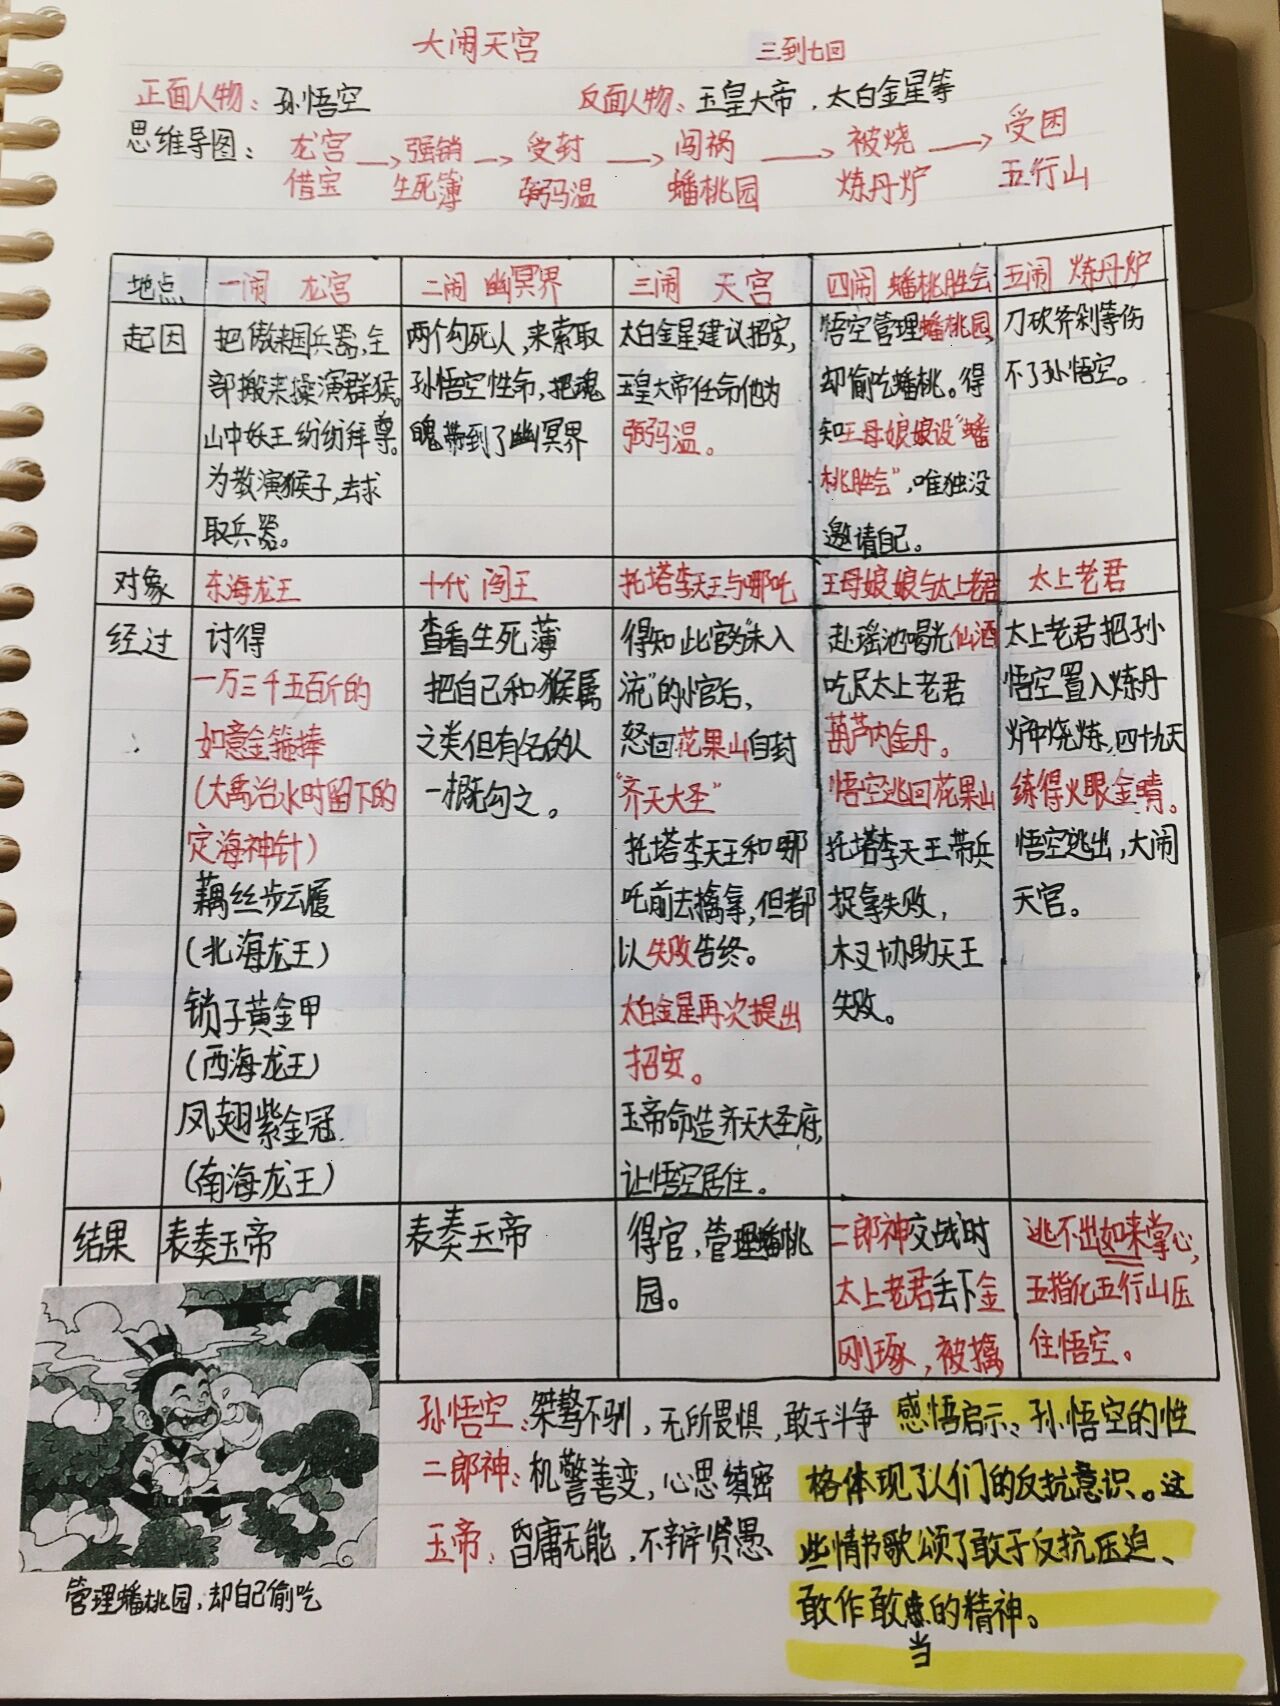 大闹天宫 三到七回
正面人物：孙悟空 反面人物：玉皇大帝，太白金星等
思维导图：
龙宫借宝 → 强销生死簿 → 受封弼马温 → 闯祸蟠桃园 → 被烧炼丹炉 → 受困五行山
地点
一闹 龙宫
二闹 幽冥界
三闹 天宫
四闹 蟠桃胜会
五闹 炼丹炉
起因
把傲来国兵器,全
部搬来操演群猴。
山中妖王纷纷拜尊。
为教演猴子,去求
取兵器。
两个勾死人,来索取
孙悟空性命,把魂
魄带到了幽冥界
太白金星建议招安,
玉皇大帝任命他为
弼马温。
悟空管理蟠桃园,
却偷吃蟠桃。得
知王母娘娘设“蟠
桃胜会”,唯独没
邀请自己。
刀砍斧剁等伤
不了孙悟空。
对象
东海龙王
十代 阎王
托塔李天王与哪吒
王母娘娘与太上老君
太上老君
经过
讨得
一万三千五百斤的
如意金箍捧
(大禹治水时留下的
定海神针)
藕丝步云履
(北海龙王)
锁子黄金甲
(西海龙王)
凤翅紫金冠
(南海龙王)
查看生死薄
把自己和猴属
之类但有名的人
一概勾之。
得知此官为“未入
流”的小官后,
怒回花果山自封
“齐天大圣”
托塔李天王和哪
吒前去擒拿,但都
以失败告终。
太白金星再次提出
招安。
玉帝命造齐天大圣府,
让悟空居住。
赴瑶池喝光仙酒
吃尽太上老君
葫芦内金丹。
悟空逃回花果山
托塔李天王带兵
捉拿失败,
木叉协助天王
失败。
太上老君把孙
悟空置入炼丹
炉中烧炼,四十九天
练得火眼金晴。
悟空逃出,大闹
天宫。
结果
表奏玉帝
表奏玉帝
得官,管理蟠桃
园。
二郎神交战时
太上老君丢下金
刚琢,被擒
逃不出如来掌心,
五指化五行山压
住悟空。
管理蟠桃园,却自己偷吃
孙悟空:桀骜不驯,无所畏惧,敢于斗争
二郎神:机警善变,心思缜密
玉帝:昏庸无能,不辩贤愚
感悟启示:孙悟空的性
格体现了人们的反抗意识。这
些情节歌颂了敢于反抗压迫、
敢作敢当的精神。